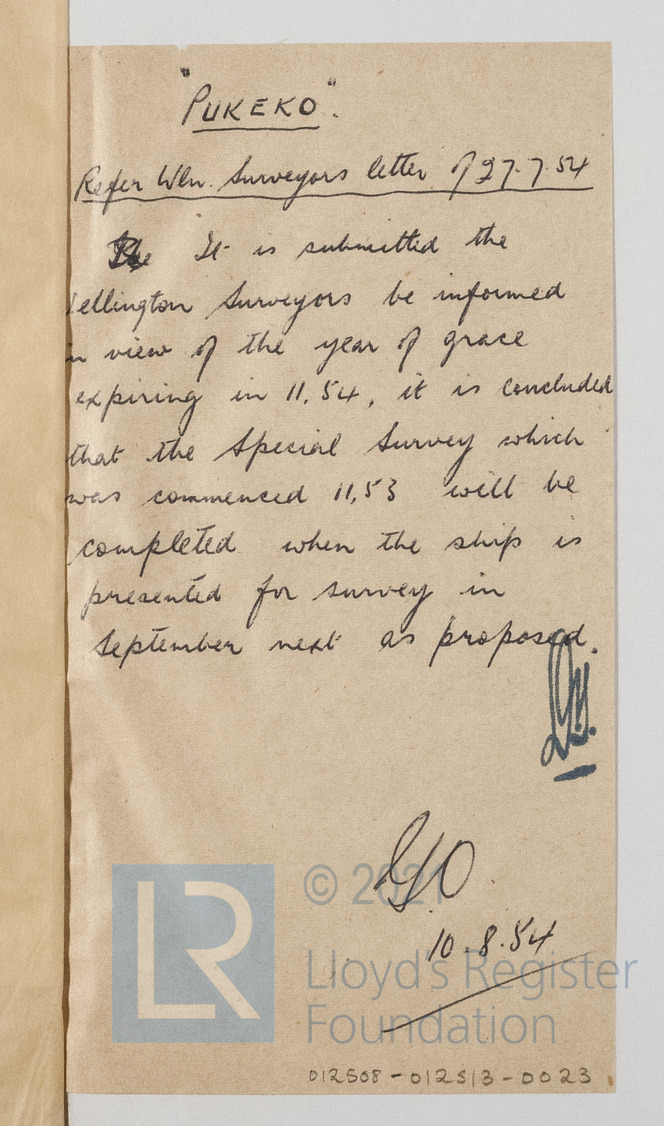 "PUKEKO".
Refer Wln. Surveyors letter of 27.7.54
It is submitted the
Wellington Surveyors be informed
in view of the year of grace
expiring in 11.54, it is concluded
that the Special Survey which
was commenced 11.53 will be
completed when the ship is
presented for survey in
September next as proposed.
10.8.54
LR
© 2021
Lloyd's Register
Foundation
012508-012513-0023